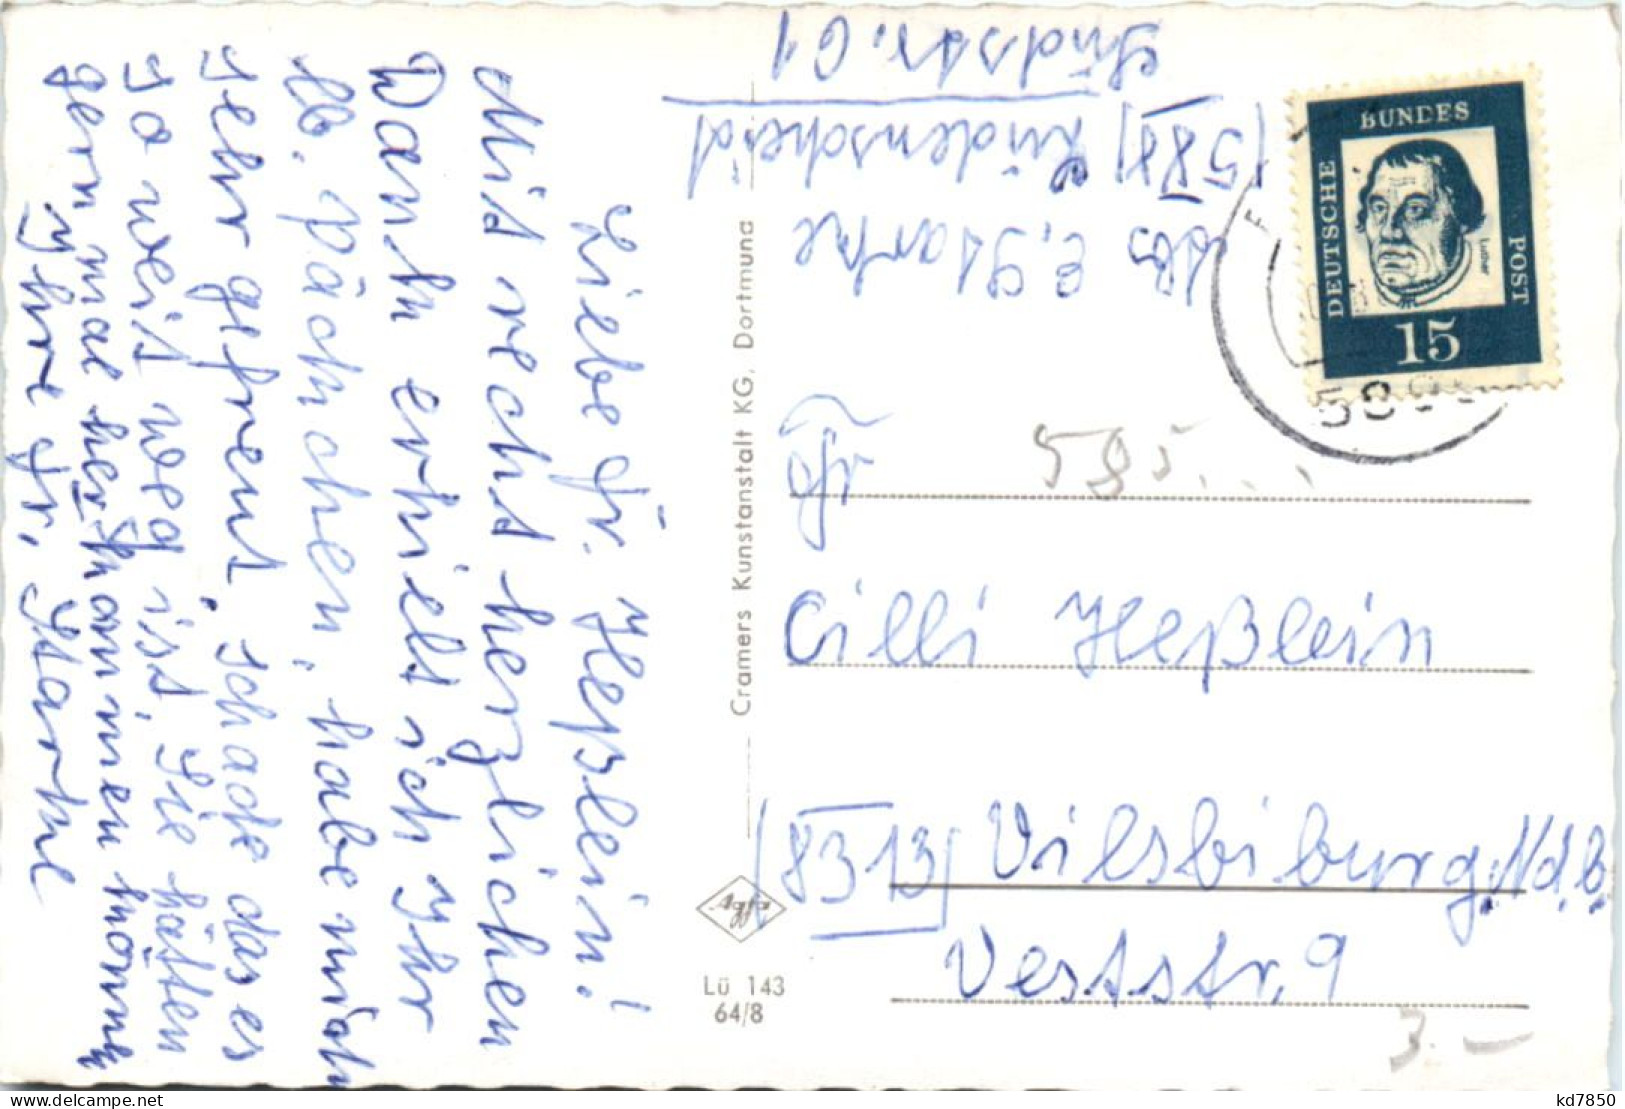 Liebe Fr. Heßlein!
Mit recht herzlichen
Dank erhielt ich Ihr
lb. päckchen, habe mich
sehr gefreut, schade das es
so weit weg ist, Sie hätten
gern mal herkommen können
Ihre Fr. Starke
Cramers Kunstanstalt KG. Dortmund
Lü 143
64/8
Abs. E. Starke
(588) Lüdenscheid
Südstr. 61
DEUTSCHE
BUNDES
POST
Luther
15
Fr
Cilli Heßlein
8313 Vilsbiburg N/d.b.
Veststr. 9
595...
3.-
kd7850